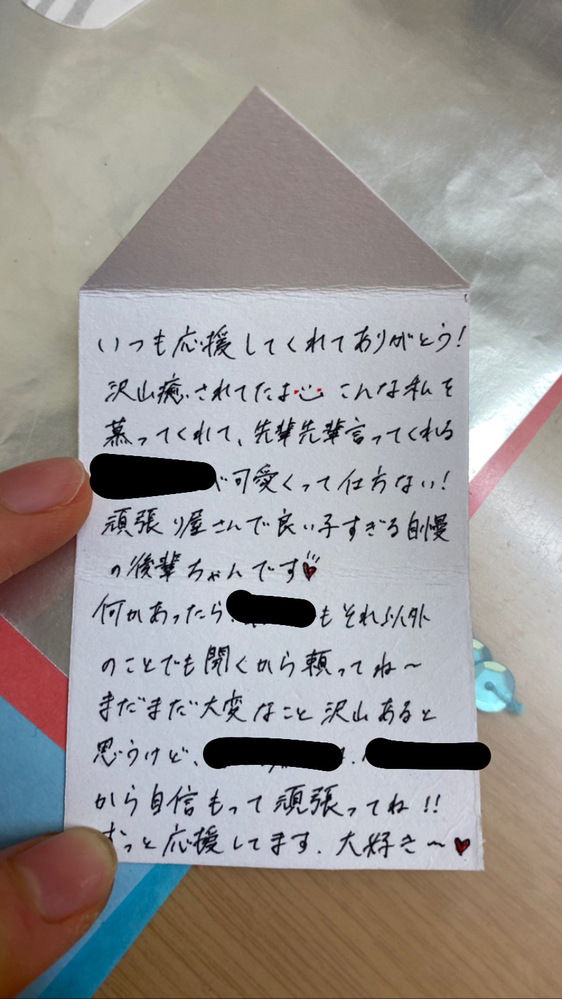 いつも応援してくれてありがとう!
沢山癒されてたよ こんな私を
慕ってくれて、先輩先輩言ってくれる
が可愛くって仕方ない!
頑張り屋さんで良い子すぎる自慢
の後輩ちゃんです
何かあったら もそれ以外
のことでも聞くから頼ってね〜
まだまだ大変なこと沢山あると
思うけど、
から自信もって頑張ってね!!
ずっと応援してます. 大好き〜